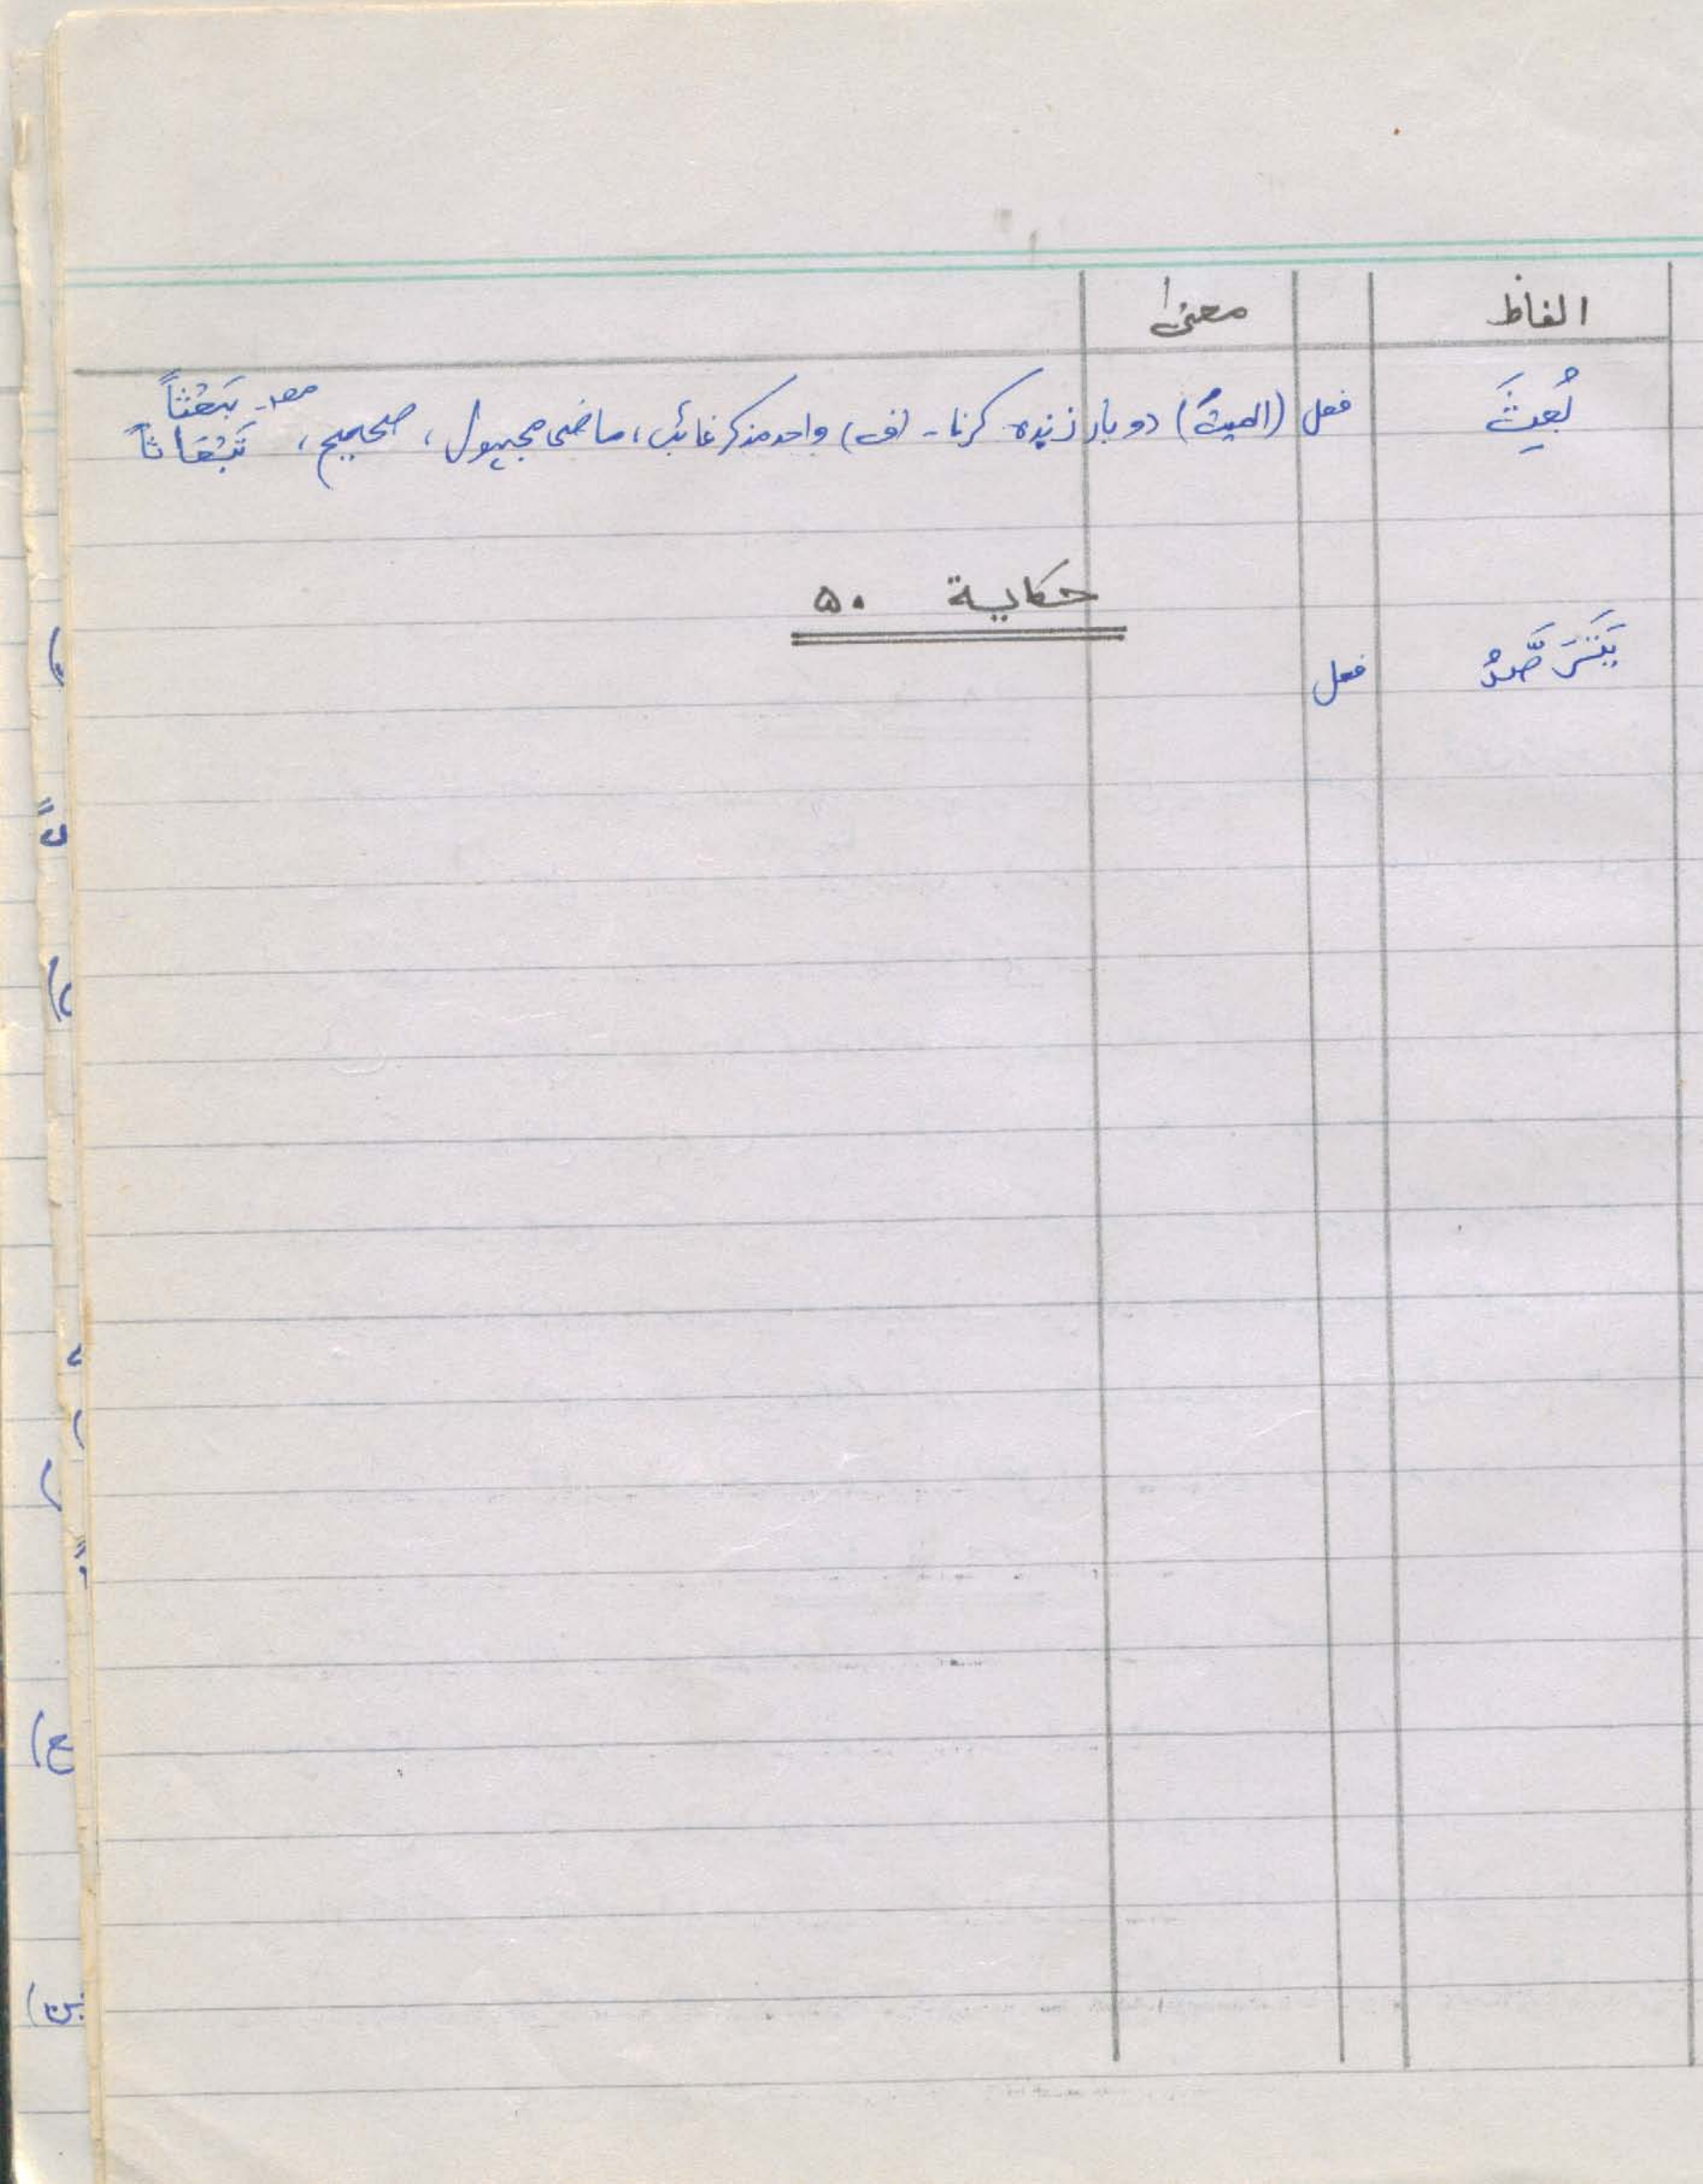 الفاظ معنیٰ
بُعِثَ فعل (المیتُ) دوبار زندہ کرنا۔ (ف) واحد مذکر غائب، ماضی مجہول، صحیح، مصد۔ بَعْثاً
تَبْعَاثاً
حکایة ۵۰
یَتَرَصَّدُ فعل